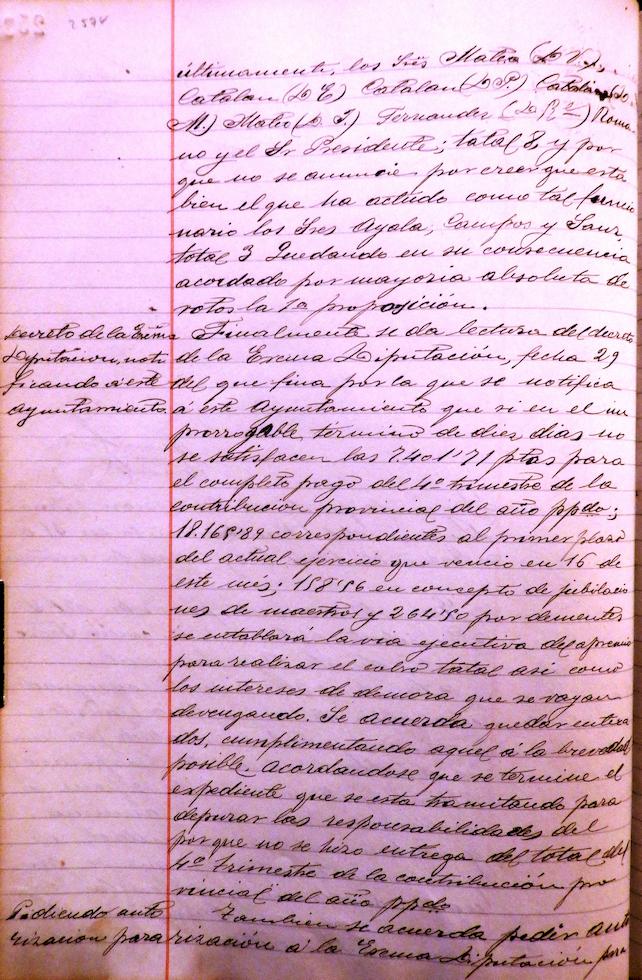 257v
últimamente, los Sres Mateo (D V.),
Catalan (D E) Catalan (D P.) Catalan (D
M.) Mateo (D J.) Fernandez (D Rl) Roma
no y el Sr Presidente; total 8, y por
que no se anuncie por creer que está
bien el que ha actudo como tal funcio
nario los Sres Ayala, Campos y Sanz
total 3 Quedando en su consecuencia
acordado por mayoria absoluta de
votos la 1a proposición.
Decreto de la Exma
Diputación, noti
ficando á este
Ayuntamiento
Finalmente se da lectura del decreto
de la Excma Diputación, fecha 29
del que fina por la que se notifica
á este Ayuntamiento que si en el im
prorrogable término de diez dias no
se satisfacen las 7.401'71 ptas para
el completo pago del 4º trimestre de la
contribución provincial del año ppdo;
18.165'89 correspondientes al primer plazo
del actual ejercicio que venció en 16 de
este mes; 158'56 en concepto de jubilacio
nes de maestros y 264'50 por dementes
se entablará la via ejecutiva de apremio
para realizar el cobro total asi como
los intereses de demora que se vayan
devengando. Se acuerda quedar entera
dos, cumplimentando aquel á la brevedad
posible. acordandose que se termine el
expediente que se esta tramitando para
depurar las responsabilidades del
porque no se hizo entrega del total del
4º trimestre de la contribución pro
vincial del año ppdo
Pidiendo auto
rizacion para
Tambien se acuerda pedir auto
rización á la Excma Diputación para